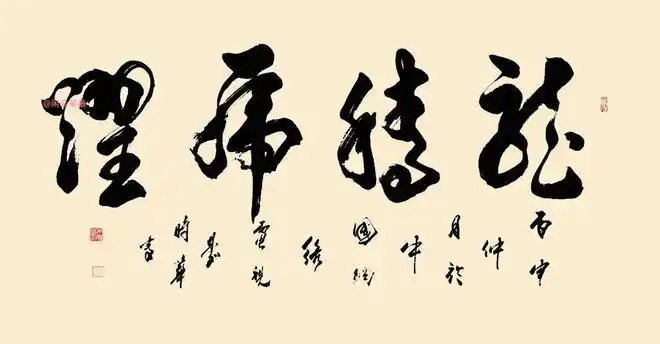 龍騰虎躍
丙申仲月於中國網絡電視臺時華書